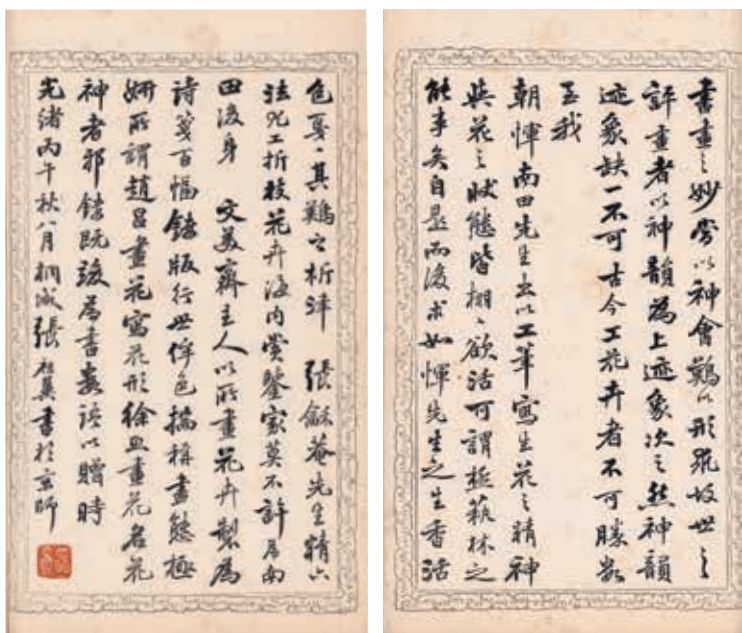 書畫之妙當以神會難以形故世之
評畫者以神韻為上迹象次之然神韻
迹象缺一不可古今工花卉者不可勝數
至我
朝惲南田先生出以工筆寫生花之精神
與花之狀態皆栩々欲活可謂極藝林之
能事矣自是而後求如惲先生之生香活
色戛々其難之析津張龢菴先生精六
法尤工折枝花卉海內賞鑒家莫不許為南
田後身文美齋主人以所畫花卉製為
詩箋百幅鋟版行世侔色揣稱盡態極
妍所謂趙昌畫花寫花形徐熙畫花名花
神者邪鋟既竣為書數語以贈時
光緒丙午秋八月桐城張祖翼書於京師